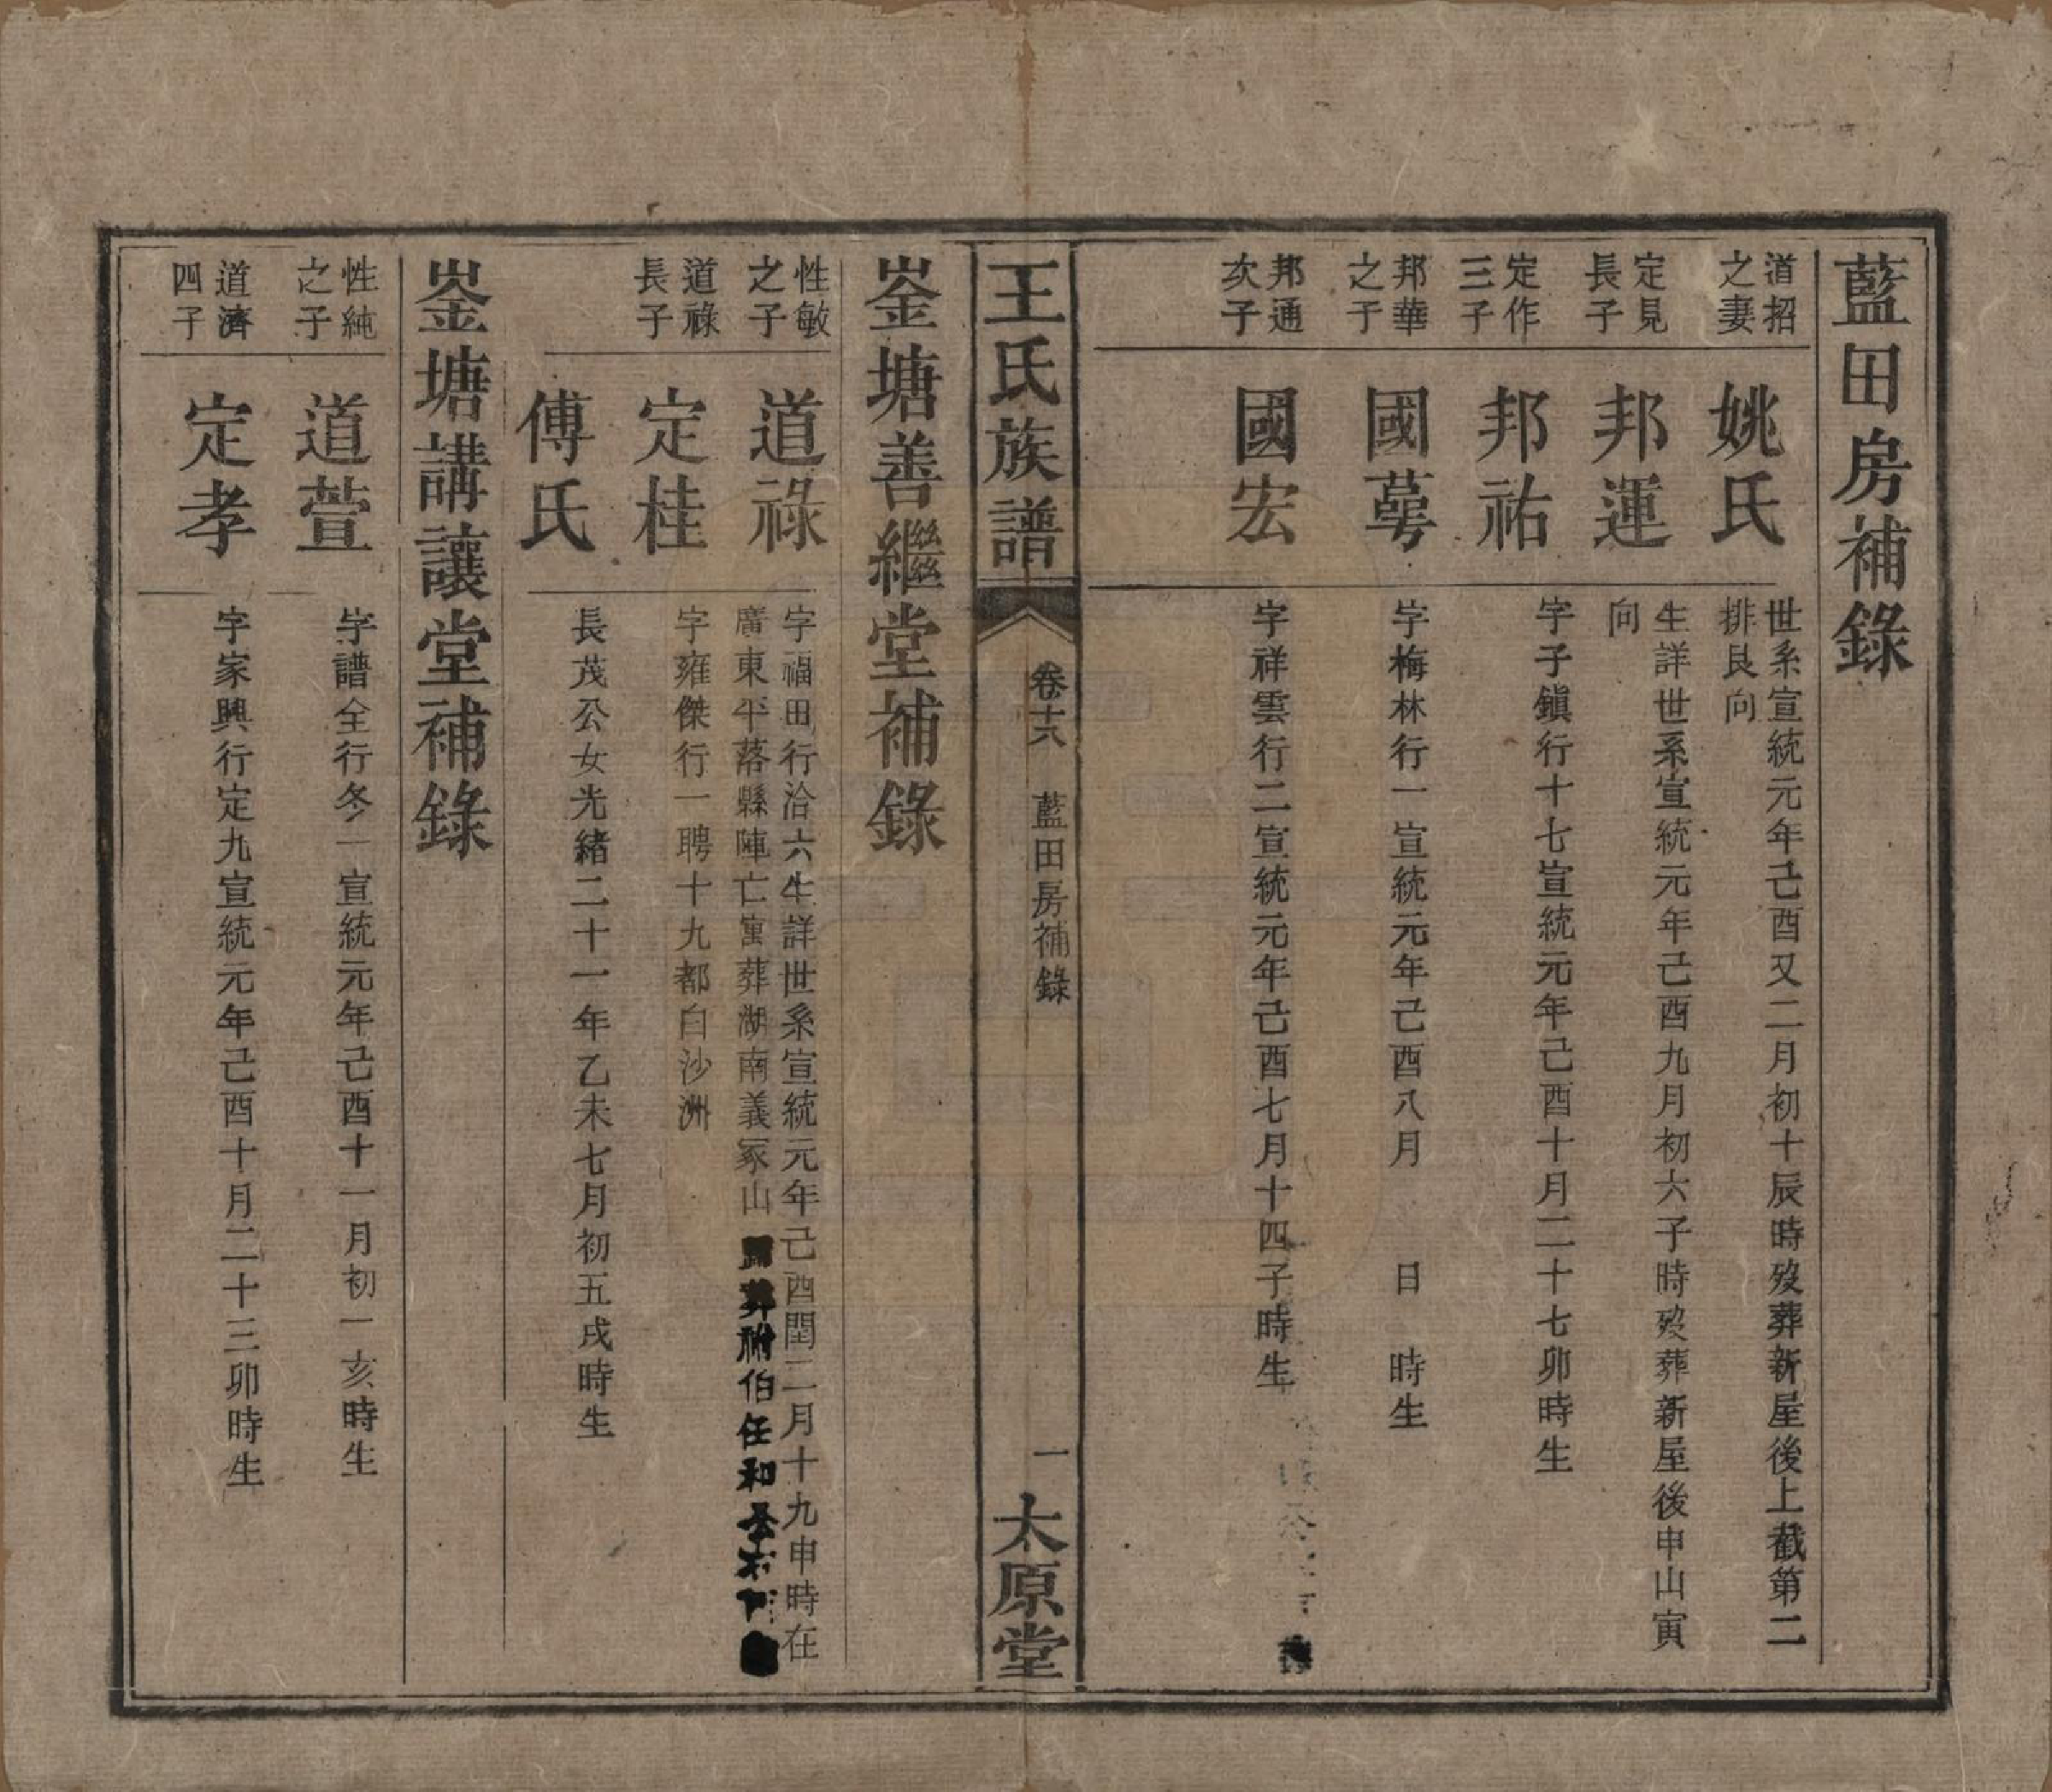 藍田房補錄
道招之妻
姚氏
世系宣統元年己酉又二月初十辰時歿葬新屋後上截第二
排艮向
定見長子
邦運
生詳世系宣統元年己酉九月初六子時歿葬新屋後申山寅
向
定作三子
邦祐
字子鎭行十七宣統元年己酉十月二十七卯時生
邦華之子
國蕚
字梅林行一宣統元年己酉八月　日　時生
邦通次子
國宏
字祥雲行二宣統元年己酉七月十四子時生
王氏族譜
卷十六　藍田房補錄
一
太原堂
崟塘善繼堂補錄
性敏之子
道祿
字福田行洽六生詳世系宣統元年己酉閏二月十九申時在
廣東平落縣陣亡寓葬湖南義冢山歸葬祔伯任和公
道祿長子
定桂
字雍傑行一聘十九都白沙洲
傅氏
長茂公女光緒二十一年乙未七月初五戌時生
崟塘講讓堂補錄
性純之子
道萱
字譜全行冬一宣統元年己酉十一月初一亥時生
道濟四子
定孝
字家興行定九宣統元年己酉十月二十三卯時生